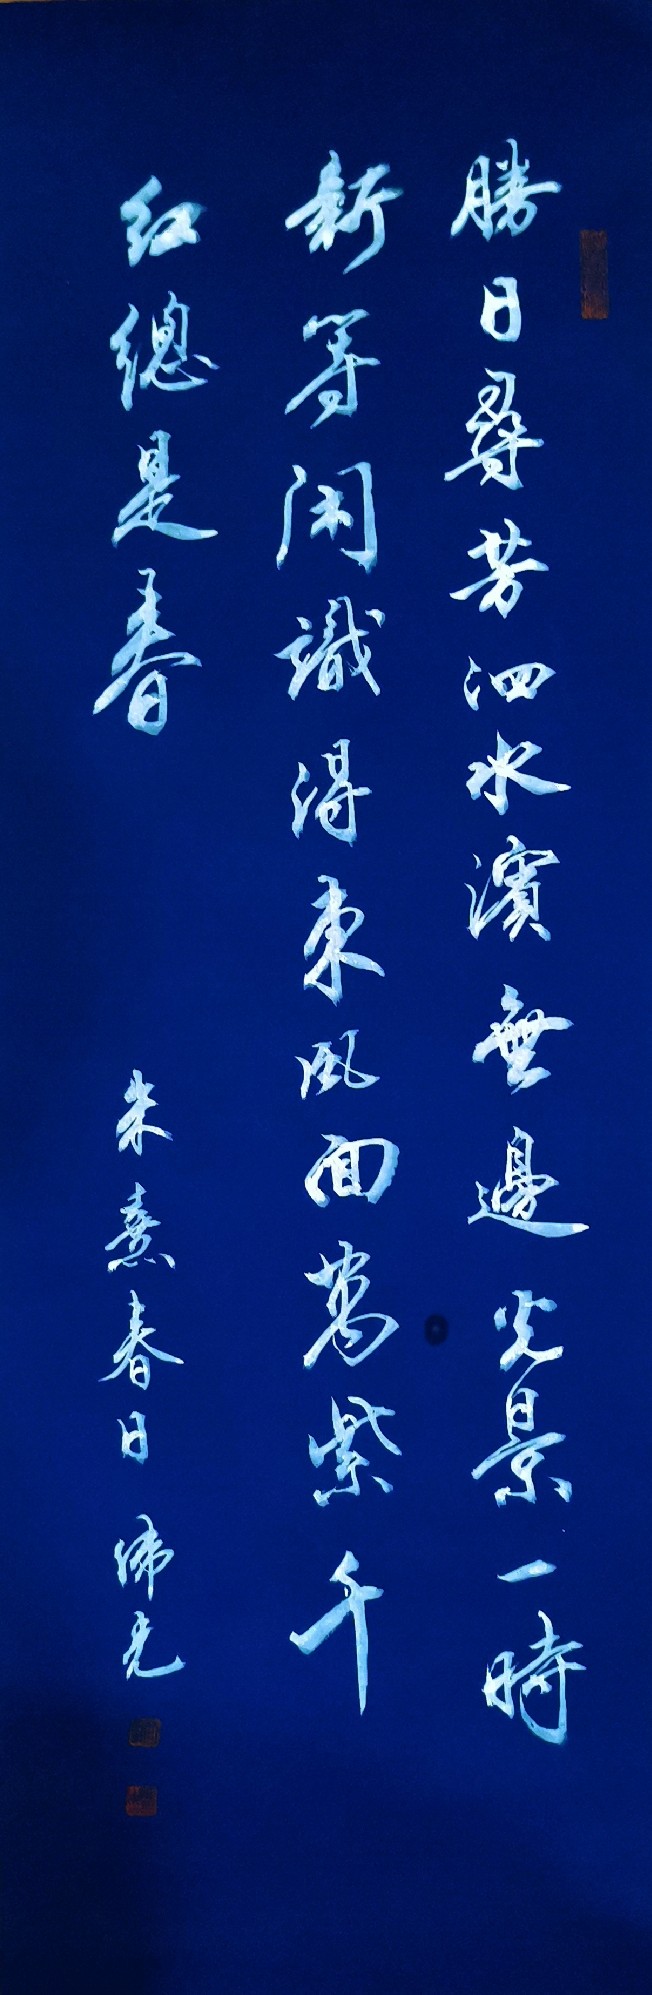 勝日尋芳泗水濱無邊光景一時
新等閑識得東風面萬紫千
紅總是春
朱熹春日 佛光